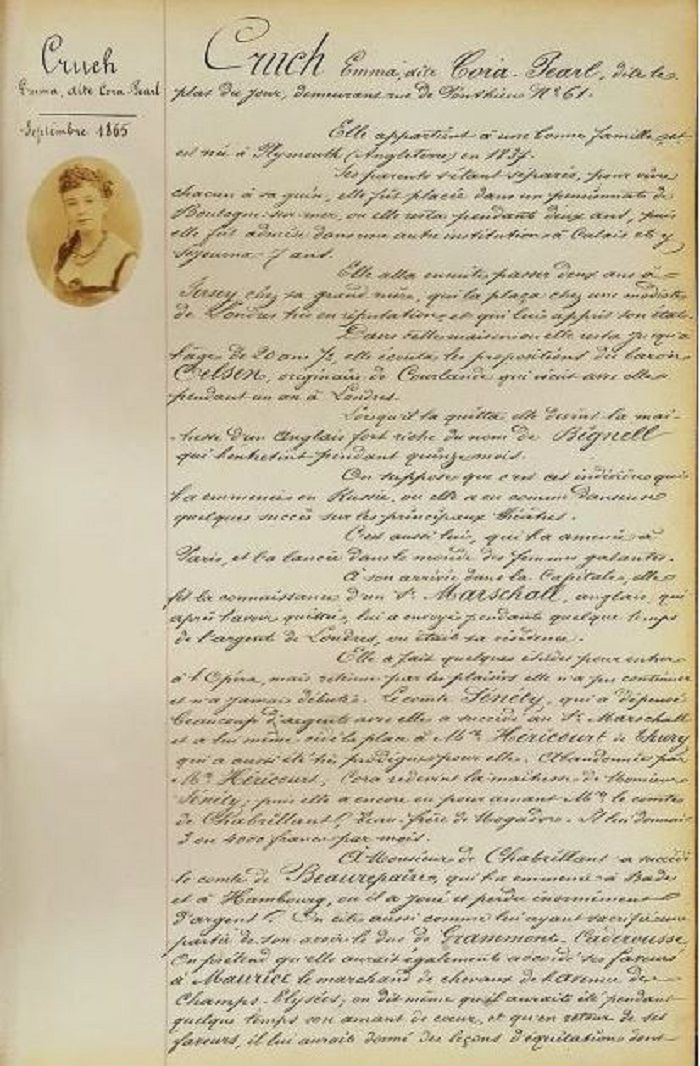 Cruch
Emma, dite Cora Pearl
Septembre 1865
Cruch Emma, dite Cora-Pearl, dite le
plat du jour, demeurant rue de Ponthieu No 61.
Elle appartient à une bonne famille, et
est née à Plymouth (Angleterre) en 1837.
Ses parents s'étant séparés, pour vivre
chacun à sa guise, elle fût placée dans un pensionnat de
Boulogne-sur-mer, où elle resta pendant deux ans, puis
elle fut admise dans une autre institution à Calais et y
séjourna 7 ans.
Elle alla ensuite passer deux ans à
Jersey chez sa grand mère, qui la plaça chez une modiste
de Londres très en réputation, et qui lui apprit son état.
Dans cette maison où elle resta jusqu'à
l'âge de 20 ans ½, elle écouta les propositions du baron
Oelsen, originaire de Courlande qui vécut avec elle
pendant un an à Londres.
Lorsqu'il la quitta elle devint la maî-
-tresse d'un Anglais fort riche du nom de Bignell
qui l'entretint pendant quinze mois.
On suppose que c'est cet individu qui
l'a emmenée en Russie, où elle a eu comme danseuse
quelques succès sur les principaux théâtres.
C'est aussi lui, qui l'a amenée à
Paris, et l'a lancée dans le monde des femmes galantes.
A son arrivée dans la Capitale, elle
fit la connaissance d'un Sr. Marschall, anglais, qui
après l'avoir quittée, lui a envoyé pendant quelque temps
de l'argent de Londres, où était sa résidence.
Elle a fait quelques études pour entrer
à l'Opéra, mais retenue par les plaisirs elle n'a pu continuer
et n'a jamais débuté. Le comte Sénély, qui a dépensé
beaucoup d'argent avec elle a succédé au Sr. Marschall
et a lui même cédé la place à Mr. Héricourt de Thury
qui a aussi été très prodigue pour elle. Abandonnée par
Mr. Héricourt, Cora redevint la maîtresse de Monsieur
Sénély; puis elle a encore eu pour amant Mr. le comte
de Chabrillant, beau-frère de Mogador. Il lui donnait
3 ou 4000 francs par mois.
A Monsieur de Chabrillant a succédé
le comte de Beaurepaire, qui l'a emmenée à Bade
et à Hambourg, où il a joué et perdu énormément
d'argent. On cite aussi comme lui ayant sacrifié une
partie de son avoir le duc de Grammont-Caderousse
On prétend qu'elle aurait également accordé ses faveurs
à Maurice le marchand de chevaux de l'Avenue des
Champs-Elysées; on dit même qu'il aurait été pendant
quelque temps son amant de coeur, et qu'en retour de ses
faveurs, il lui aurait donné des leçons d'équitation dont